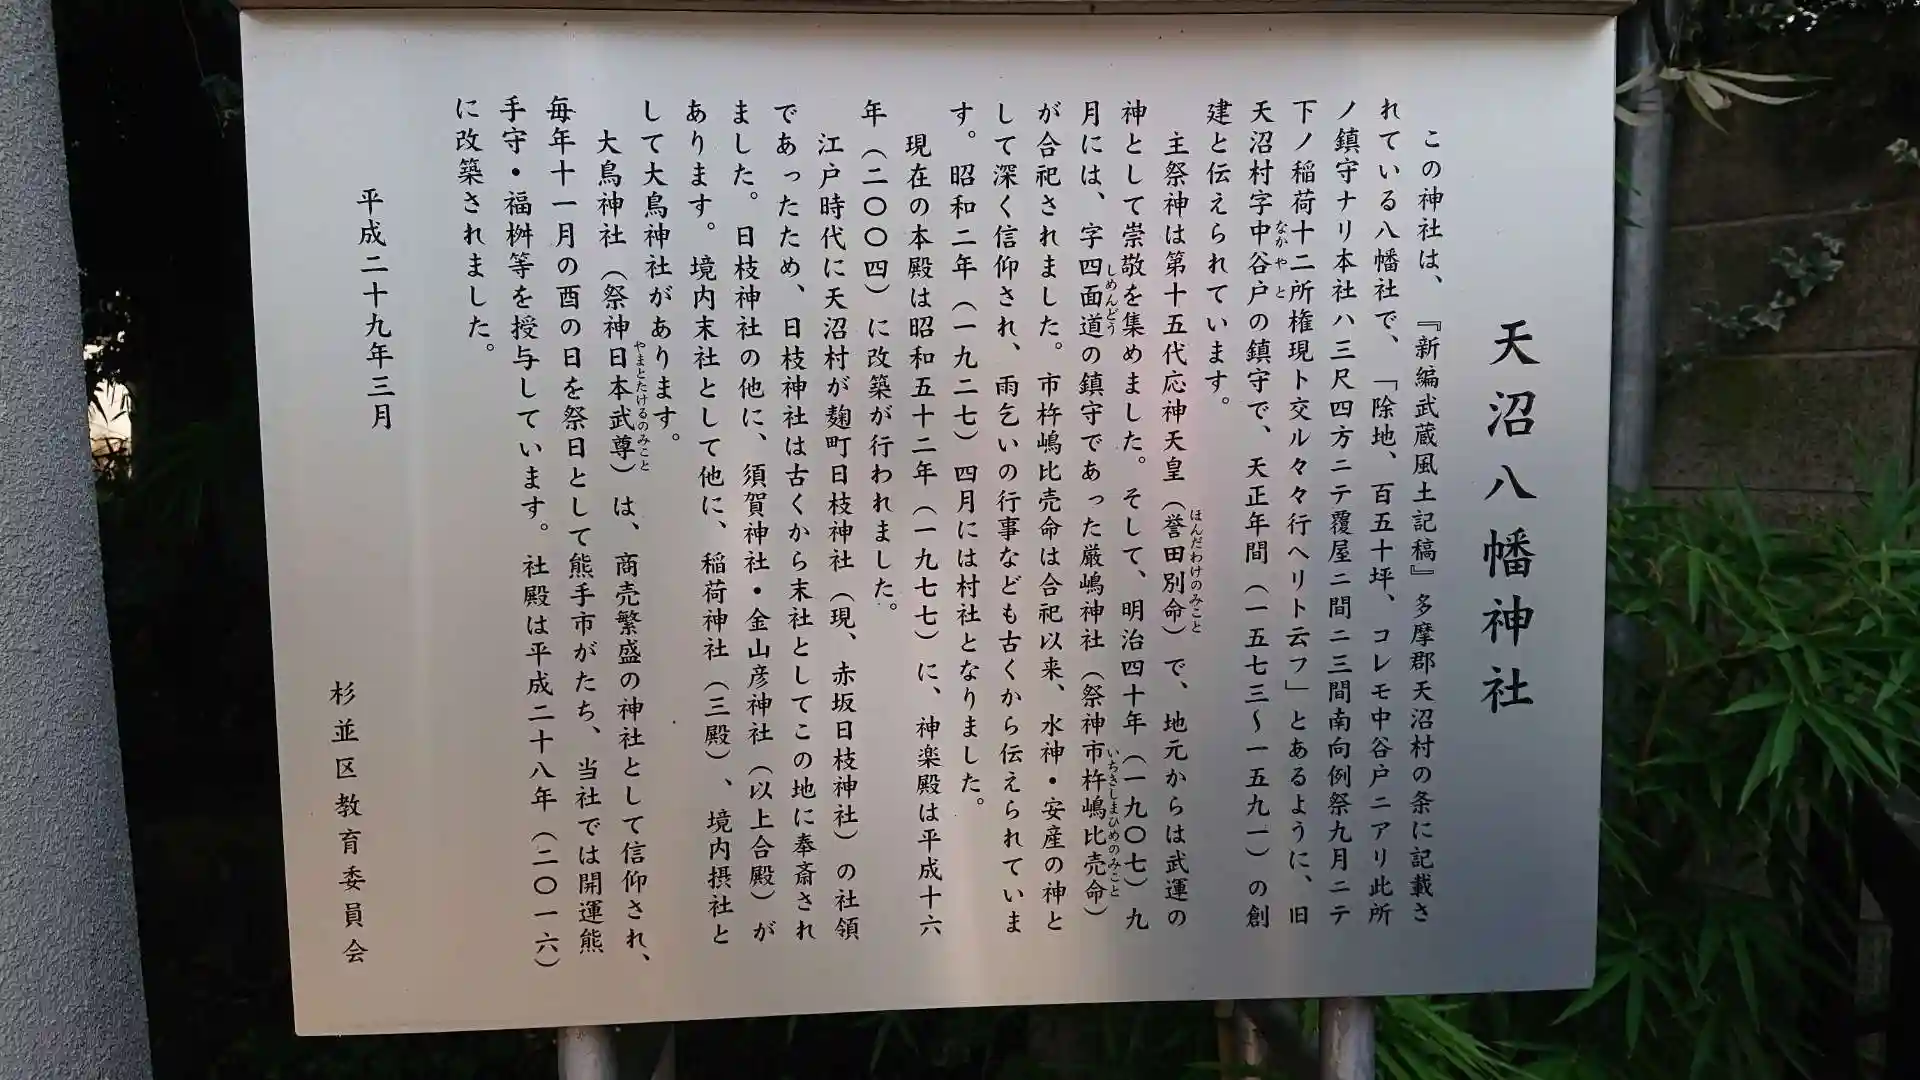 天沼八幡神社
この神社は、『新編武蔵風土記稿』多摩郡天沼村の条に記載さ
れている八幡社で、「除地、百五十坪、コレモ中谷戸ニアリ此所
ノ鎮守ナリ本社ハ三尺四方ニテ覆屋ニ間ニ三間南向例祭九月ニテ
下ノ稲荷十二所権現ト交ル々々行ヘリト云フ」とあるように、旧
天沼村字中谷戸の鎮守で、天正年間（一五七三～一五九一）の創
建と伝えられています。
主祭神は第十五代応神天皇（誉田別命）で、地元からは武運の
神として崇敬を集めました。そして、明治四十年（一九〇七）九
月には、字四面道の鎮守であった厳嶋神社（祭神市杵嶋比売命）
が合祀されました。市杵嶋比売命は合祀以来、水神・安産の神と
して深く信仰され、雨乞いの行事なども古くから伝えられていま
す。昭和二年（一九二七）四月には村社となりました。
現在の本殿は昭和五十二年（一九七七）に、神楽殿は平成十六
年（二〇〇四）に改築が行われました。
江戸時代に天沼村が麹町日枝神社（現、赤坂日枝神社）の社領
であったため、日枝神社は古くから末社としてこの地に奉斎され
ました。日枝神社の他に、須賀神社・金山彦神社（以上合殿）が
あります。境内末社として他に、稲荷神社（三殿）、境内摂社と
して大鳥神社があります。
大鳥神社（祭神日本武尊）は、商売繁盛の神社として信仰され、
毎年十一月の酉の日を祭日として熊手市がたち、当社では開運熊
手守・福桝等を授与しています。社殿は平成二十八年（二〇一六）
に改築されました。
平成二十九年三月
杉並区教育委員会